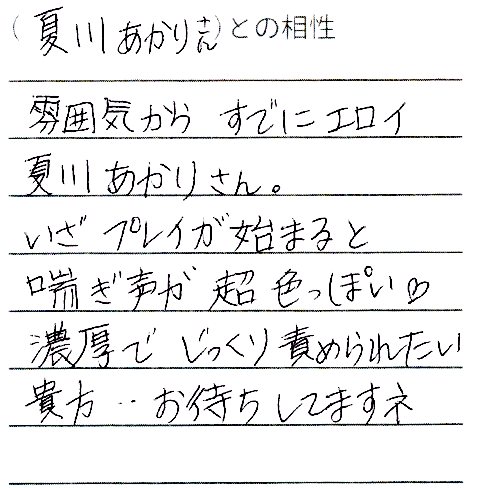 (夏川あかりさん)との相性
雰囲気から すでにエロイ
夏川あかりさん。
いざ プレイが始まると
喘ぎ声が 超 色っぽい♡
濃厚で じっくり責められたい
貴方‥お待ちしてますネ